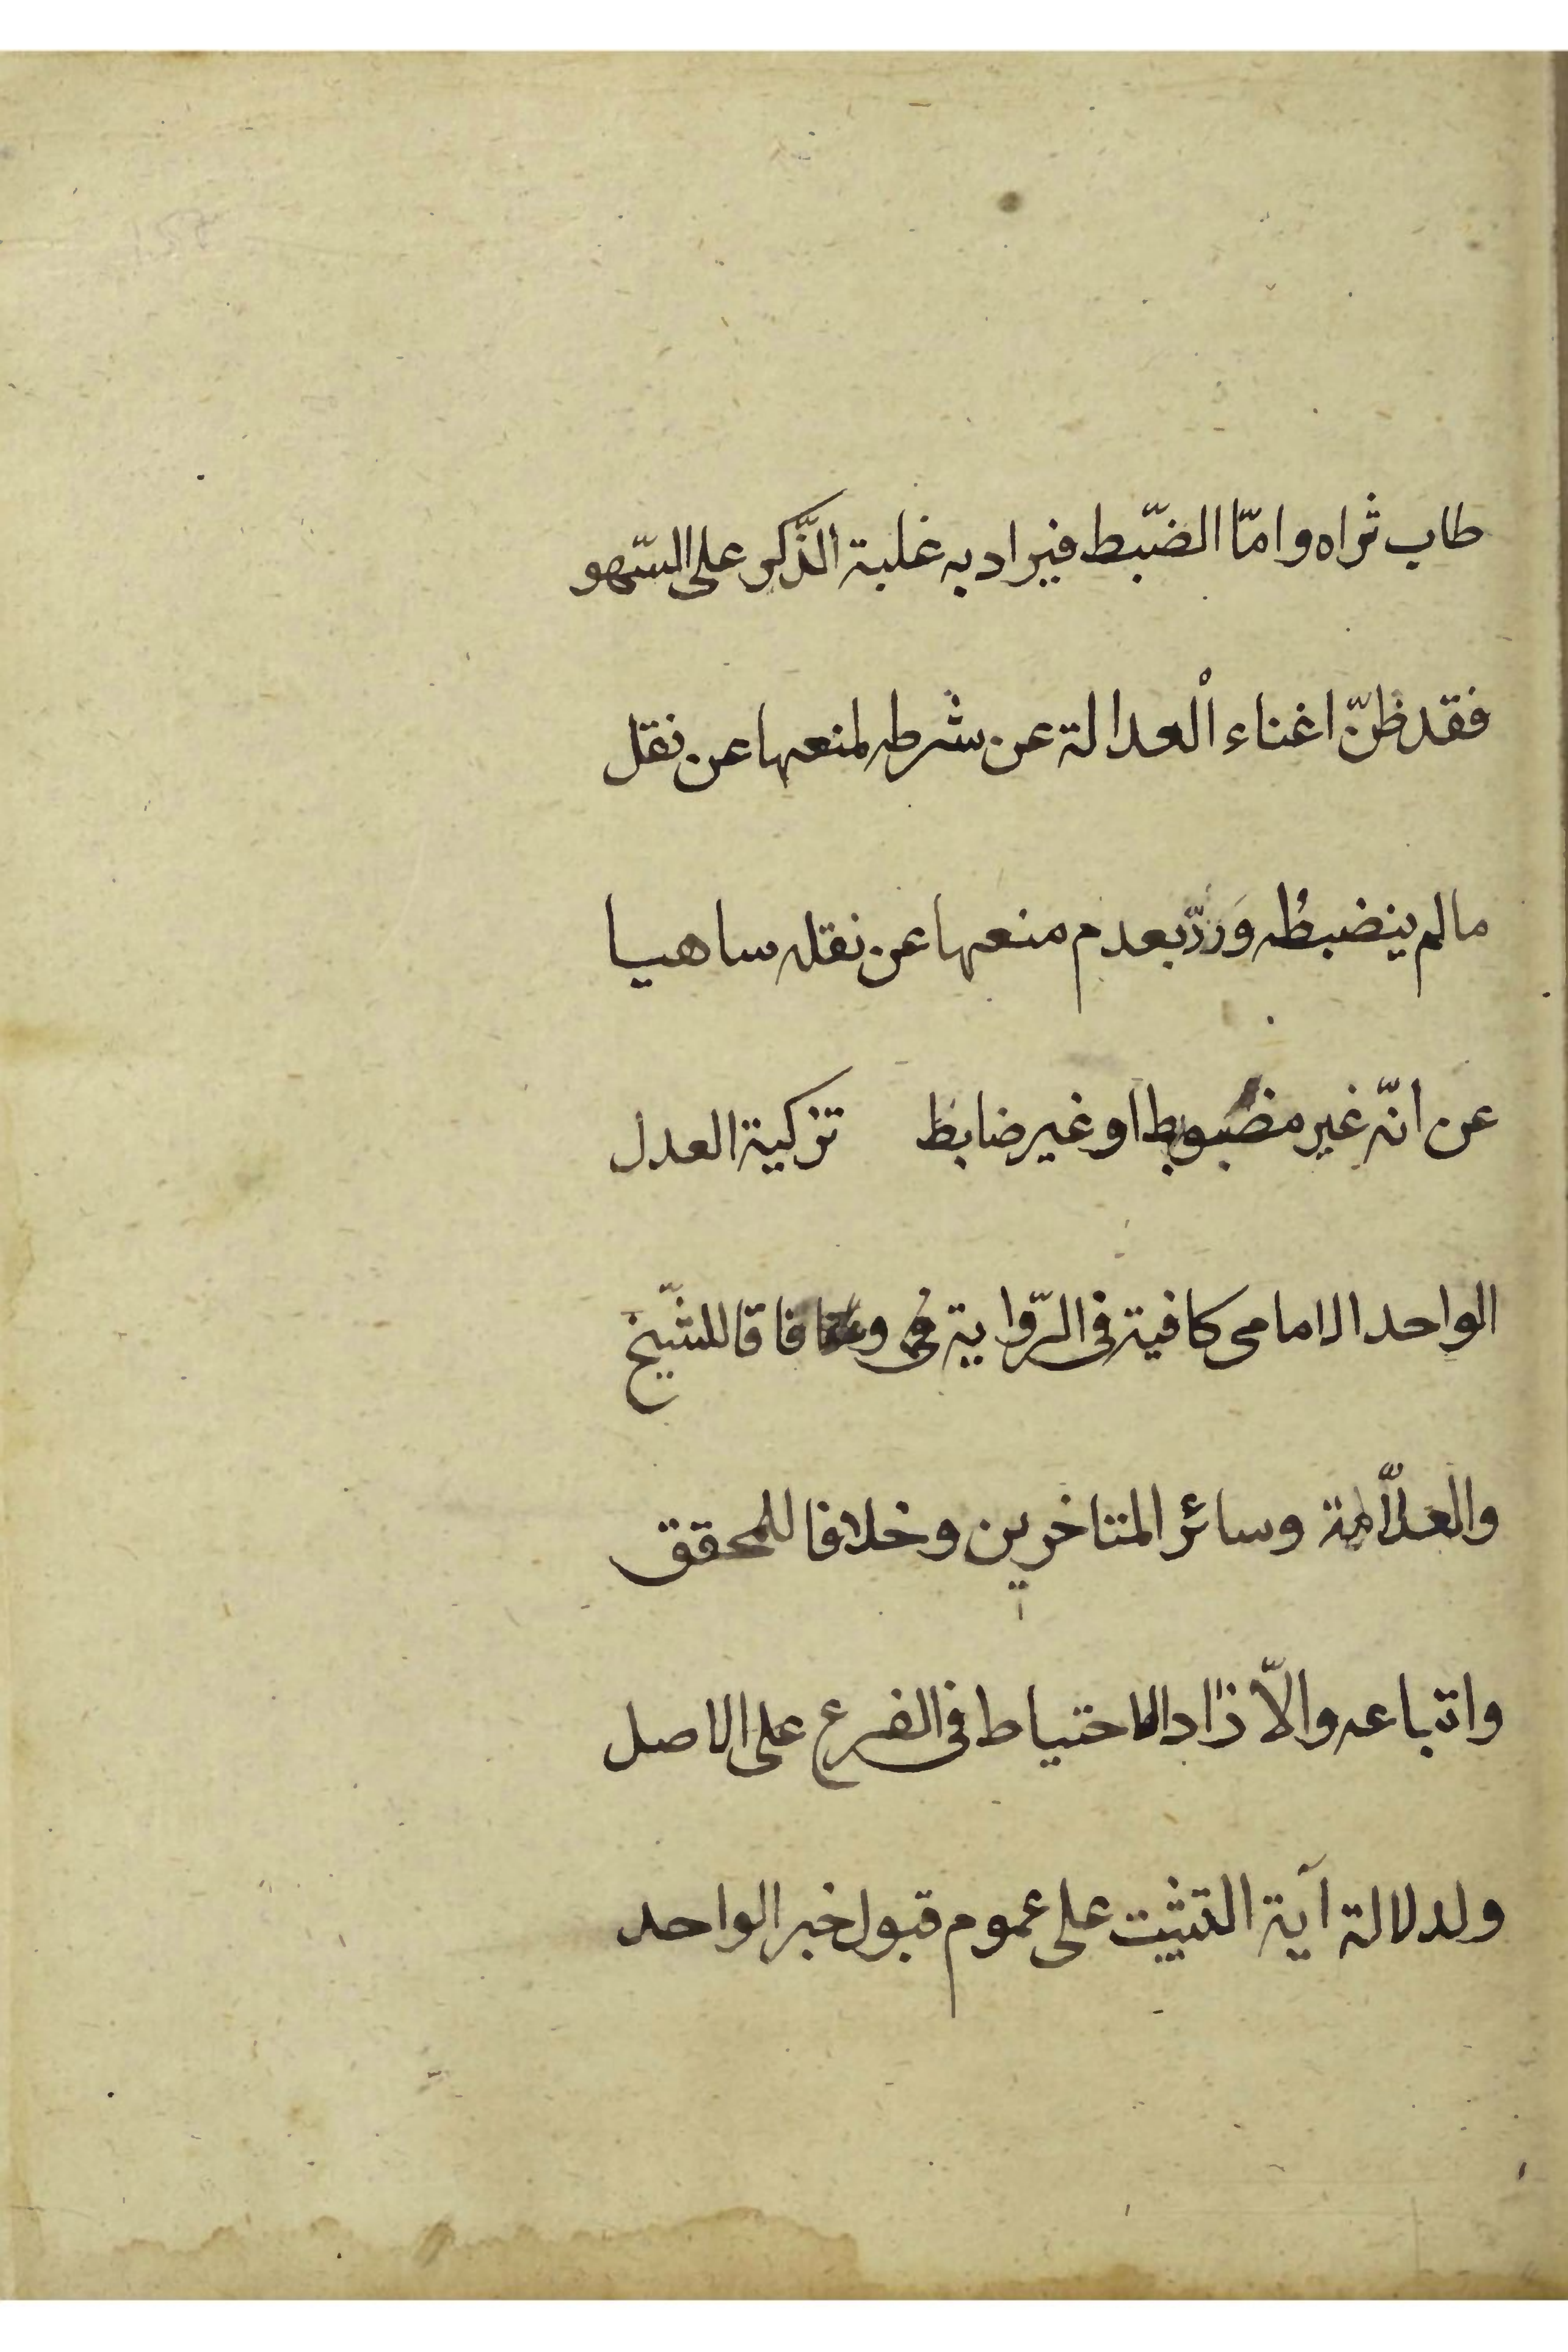 طاب ثراه وامّا الضّبط فيراد به غلبة الذّكر على السّهو
فقد ظنّ اغناء الْعدالة عن شرطه لمنعها عن نقل
ما لم ينضبطُه وَردّ بعدم منعها عن نقله ساهيا
عن انّه غير مضبوط او غير ضابط تزكية العدل
الواحد الامامى كافية فى الرّواية وفاقا للشّيخ
والعلّامة وسائر المتاخرين وخلافا للمحقق
واتباعه والّا زاد الاحتياط فى الفرع على الاصل
ولدلالة آية التثبت على عموم قبول خبر الواحد